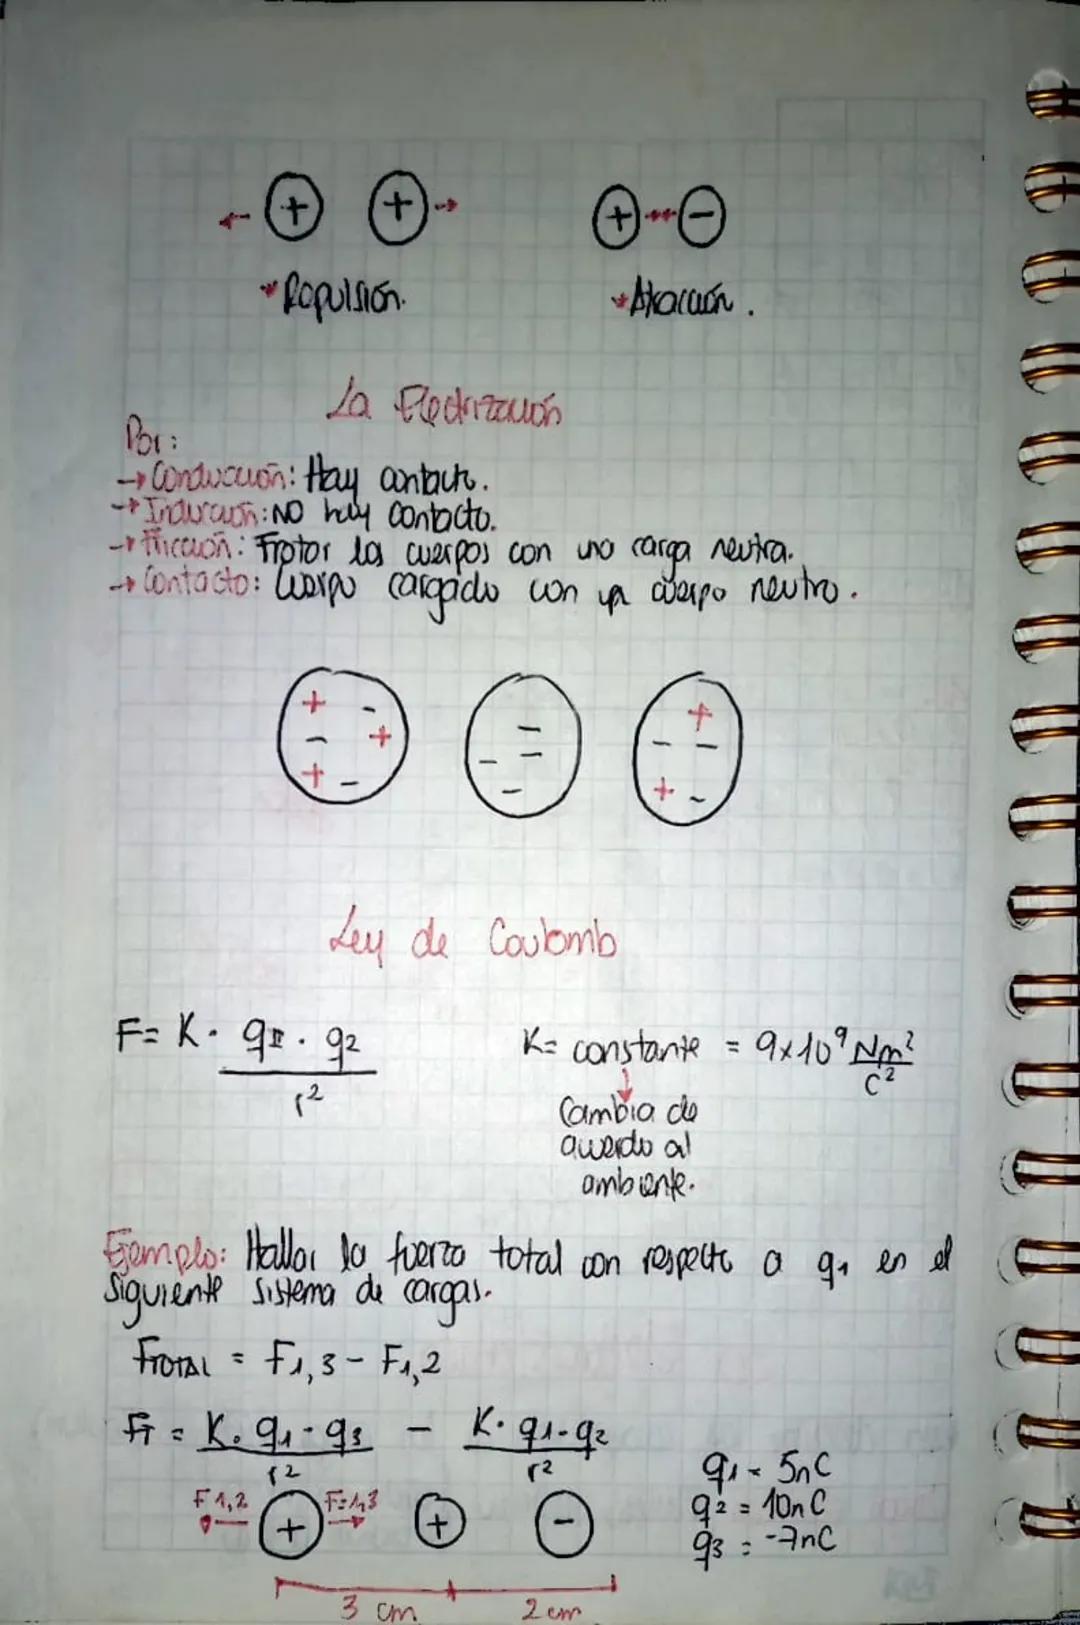 + + + -
* Repulsión. * Atracción.
La Electrización
Por:
→ Conducción: Hay contacto.
→ Inducción: NO hay contacto.
→ Fricción: Frotar los cuerpos con una carga neutra.
→ Contacto: Cuerpo cargado con un cuerpo neutro.
+ - - +
- + - - - -
+ - - + -
Ley de Coulomb
F = K · q1 · q2 / r² K = constante = 9x10⁹ Nm²/C²
Cambia de
acuerdo al
ambiente.
Ejemplo: Hallar la fuerza total con respecto a q1 en el
siguiente sistema de cargas.
FTOTAL = F1,3 - F1,2
FT = K · q1 · q3 / r² - K · q1 - q2 / r²
q1 = 5nC
q2 = 10nC
q3 = -7nC
F1,2 + F=1,3 + -
3 cm 2 cm